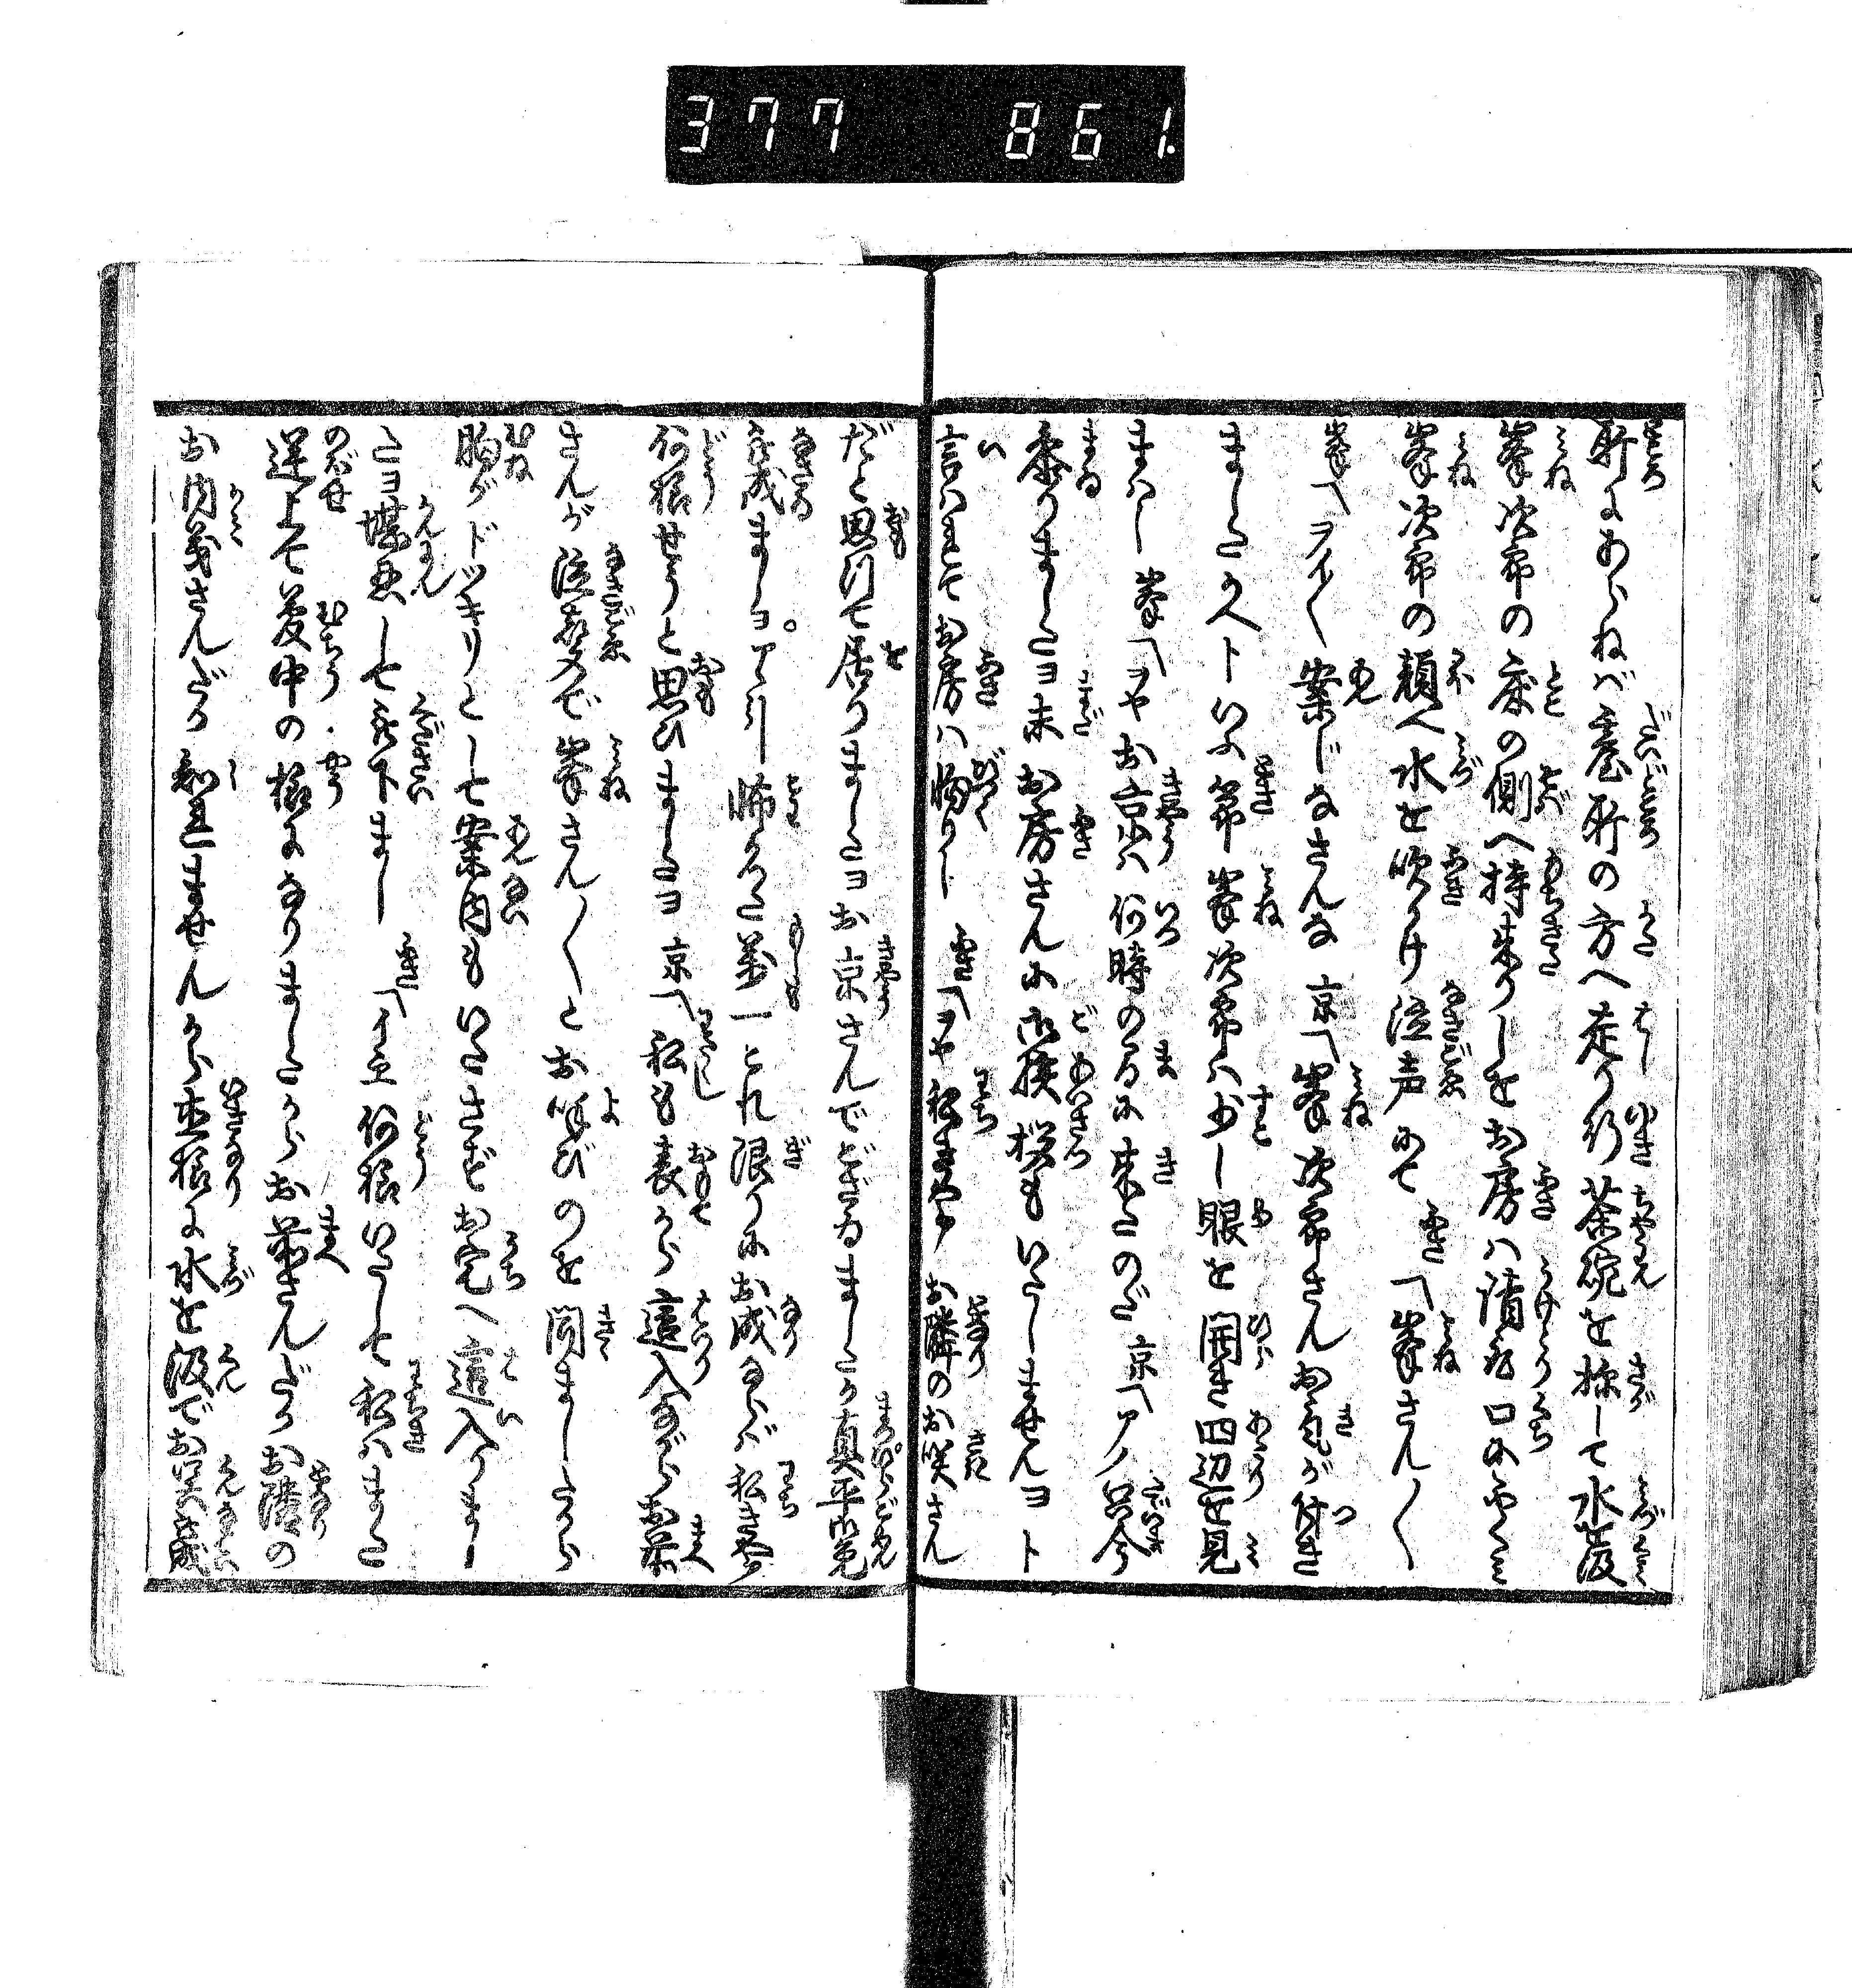 377 861.
所にあらねば臺所の方へ走り行茶碗を探して水汲
峯次郎の床の側へ持来りしをお房ハ請取口にふくミ
峯次郎の顔へ水を吹かけ泣声にて 房「峯さん〳〵
峯「ヲイ〳〵案じなさんな 京「峯次郎さんお氣が付き
ましたかヘトいふ時峯次郎ハ少し眼を開き四辺を見
まハし 峯「ヲヤお京さんハ何時の間に来たのだ 京「アノ只今
参りましたヨ未お房さんに御挨拶もいたしませんヨト
言ハれてお房ハ恟りし 房「ヲヤ私きやアお隣のお咲さん
だと思ツて居りましたヨお京さんでござゐましたか真平御免
被成ましヨ。アヽ引怖かつた萬一これ限りにお成ならば私きやア
何様せうと思ひましたヨ 京「私も表から這入ながらお前
さんが泣声で峯さん〳〵とお呼びのを聞ましたから
胸がドツキリとして案内もいたさずお宅へ這入りまし
たヨ堪忍して被下まし 房「イヱ何様いたして私ハまた
逆上て夢中の様になりましたからお前さんだかお隣の
お内義さんだか知れませんから直様に水を汲でお呉被成